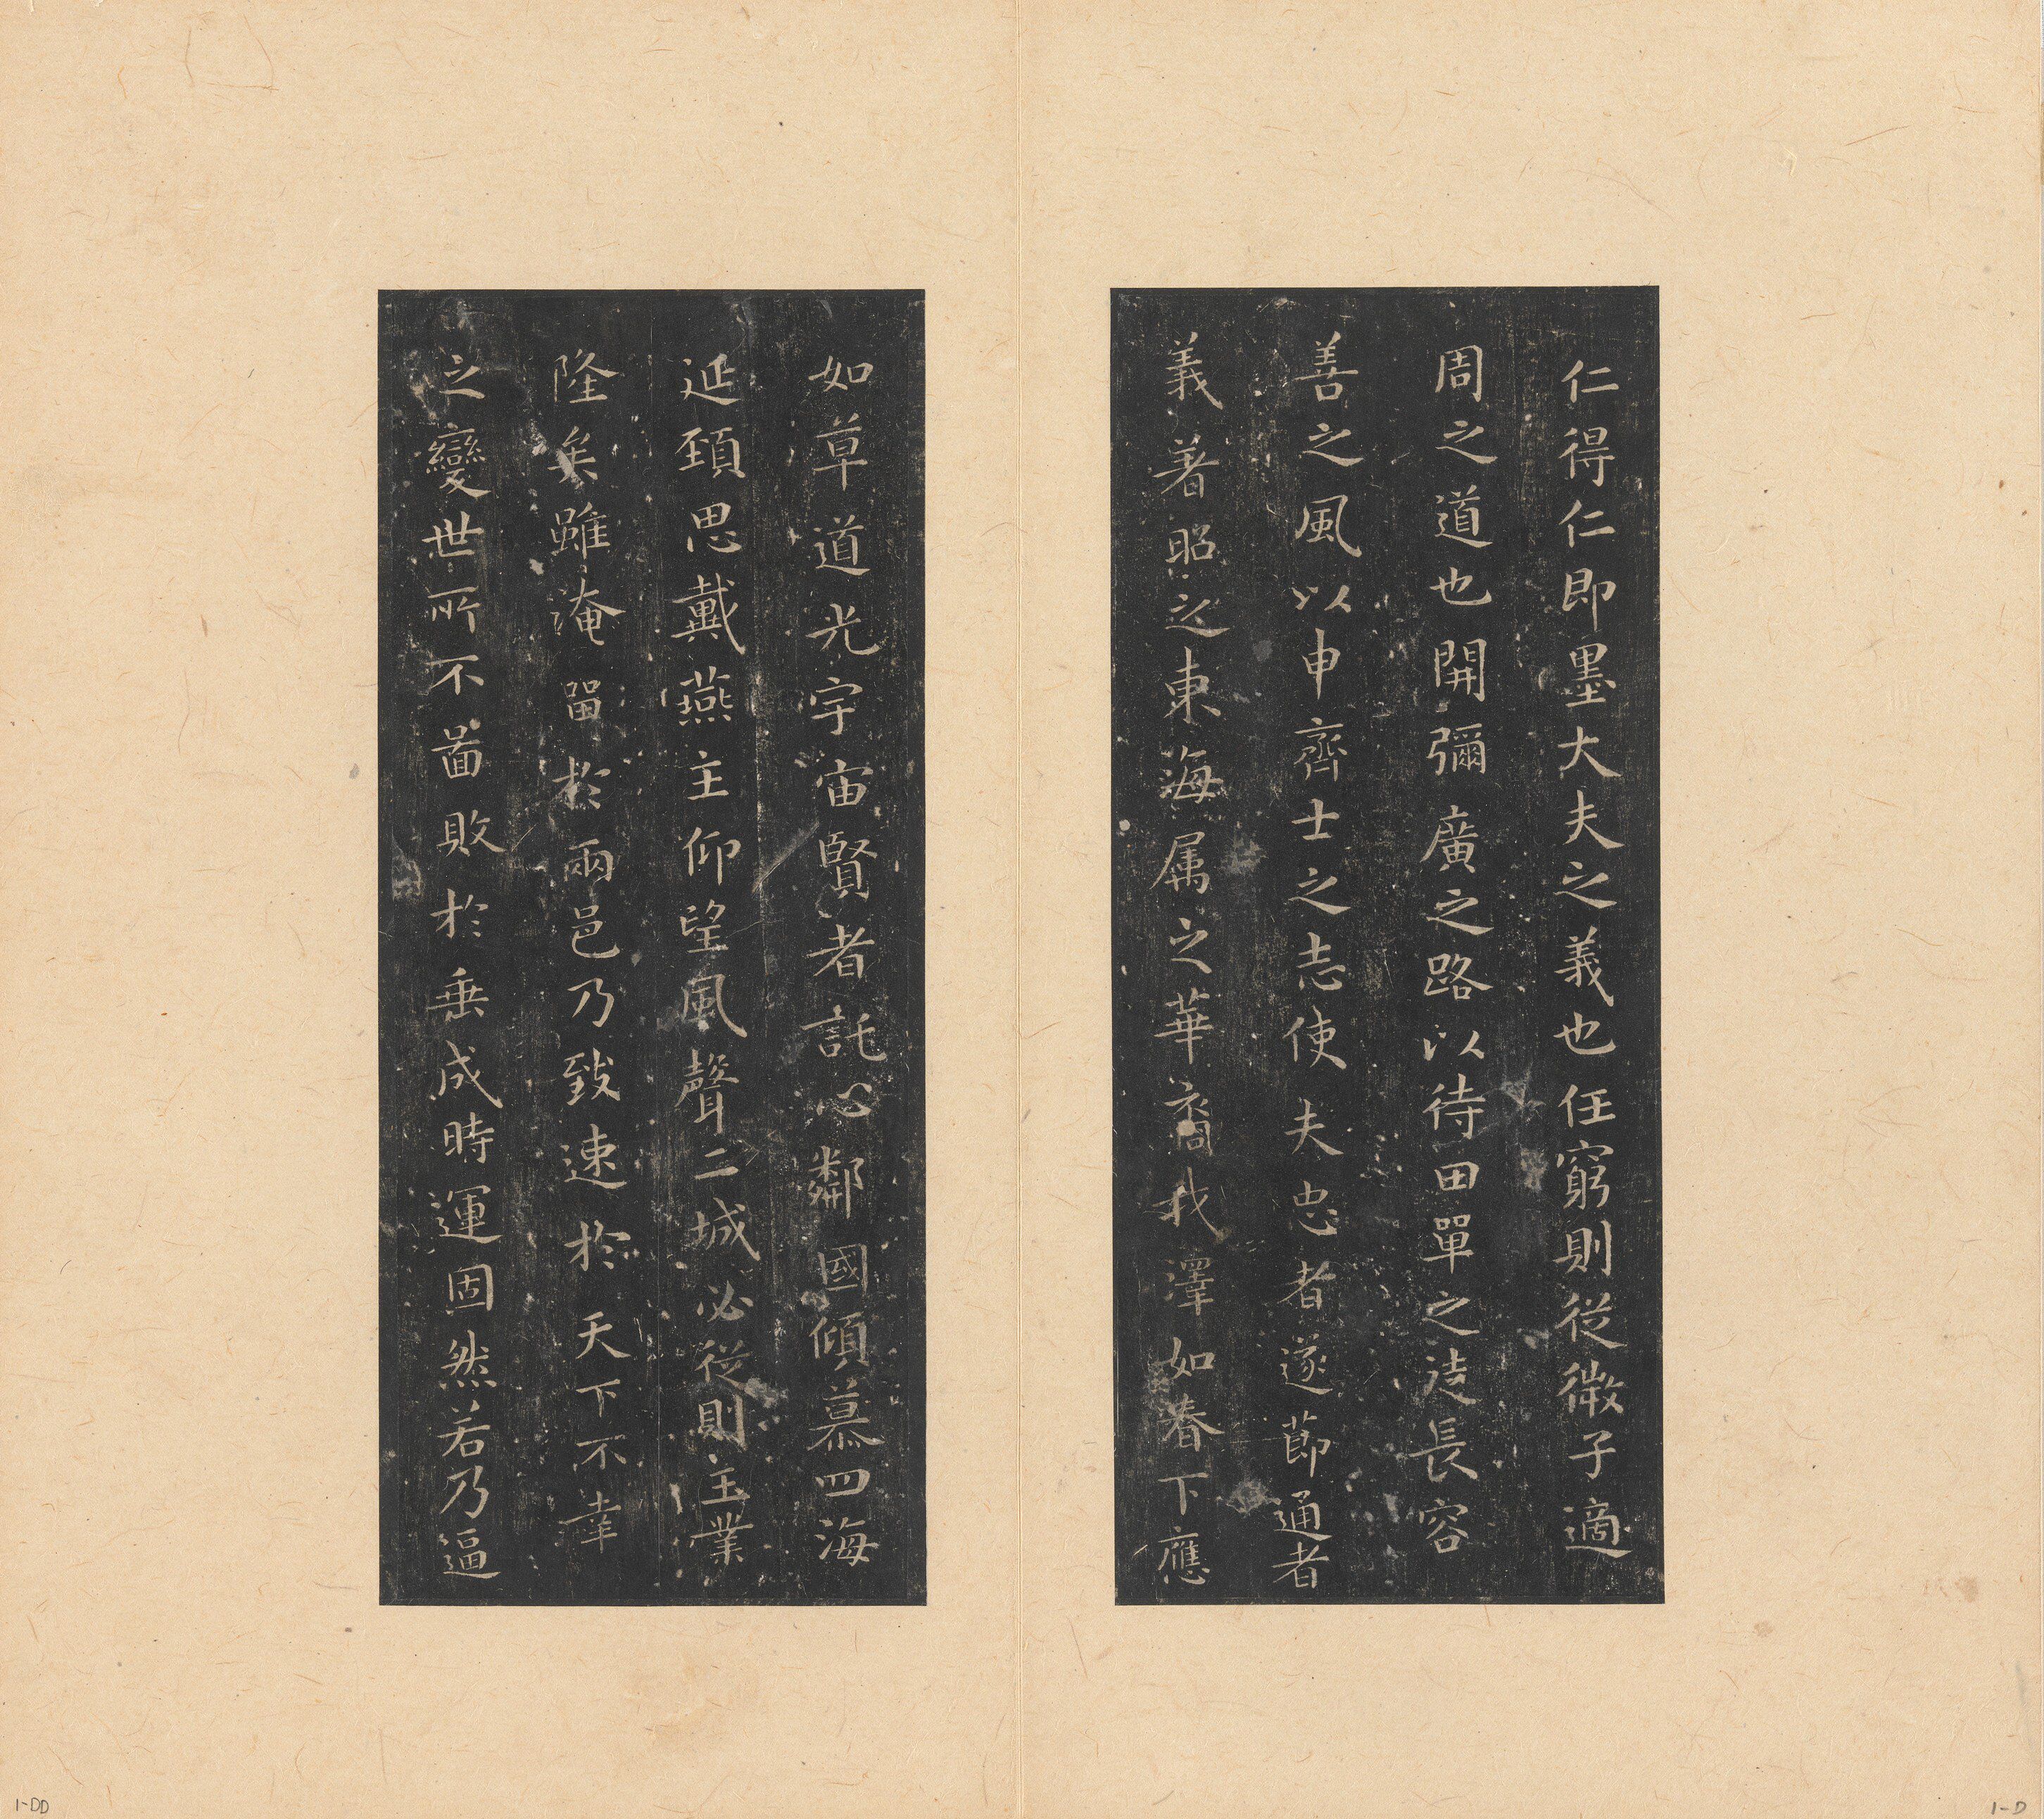 仁得仁即墨大夫之義也任窮則從微子適
周之道也開彌廣之路以待田單之徒長容
善之風以申齊士之志使夫忠者遂莭通者
義著昭之東海属之華裔我澤如春下應
如草道光宇宙賢者託心鄰國傾慕四海
延頚思戴燕主仰望風聲二城必從則王業
隆矣雖淹留於兩邑乃致速於天下不幸
之變世所不啚敗於垂成時運固然若乃逼
1-DD
1-D